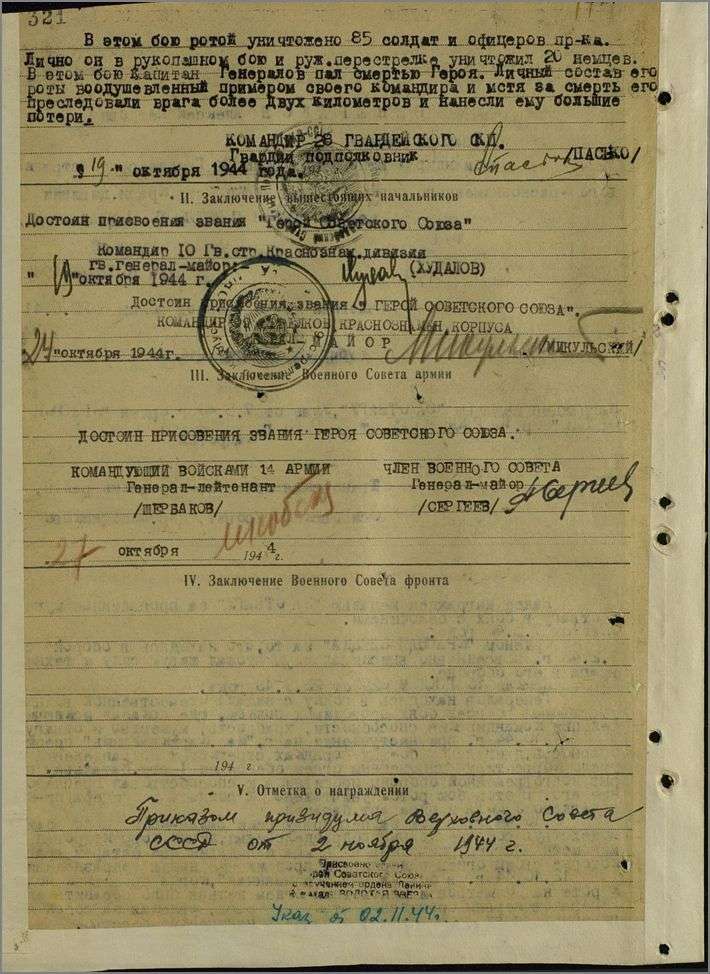 321
В этом бою ротой уничтожено 85 солдат и офицеров пр-ка.
Лично он в рукопашном бою и руж.перестрелке уничтожил 20 немцев.
В этом бою Капитан Генералов пал смертью Героя. Личный состав его
роты воодушевленный примером своего командира и мстя за смерть его
преследовали врага более двух километров и нанесли ему большие
потери.
КОМАНДИР 28 ГВАРДЕЙСКОГО СП.
Гвардии подполковник /ПАСЬКО/
"19" октября 1944 года.
II. Заключение вышестоящих начальников
Достоин присвоения звания "Герой Советского Союза"
Командир 10 Гв.стр.Краснознам.дивизии
гв.генерал-майор- (ХУДАЛОВ)
"19" октября 1944 г.
Достоин присвоения звания " ГЕРОЙ СОВЕТСКОГО СОЮЗА".
КОМАНДИР КРАСНОЗНАМЕН КОРПУСА
МАЙОР /МИКУЛЬСКИЙ/
24 "октября 1944г.
III. Заключение Военного Совета армии
ДОСТОИН ПРИСОВЕНИЯ ЗВАНИЯ ГЕРОЯ СОВЕТСКОГО СОЮЗА.
КОМАНДУЮЩИЙ ВОЙСКАМИ 14 АРМИИ ЧЛЕН ВОЕННОГО СОВЕТА
Генерал-лейтенант Генерал-майор
/ЩЕРБАКОВ/ /СЕРГЕЕВ/
27 октября 1944 г.
IV. Заключение Военного Совета фронта
" 194 г
V. Отметка о награждении
Приказом призидума Верховного Совета
СССР от 2 ноября 1944 г.
Присвоено
рой Советского Союз
вручением ордена Ленин
ЗОЛОТАЯ ЗВЕЗДА
Указ от 02.11.44г.